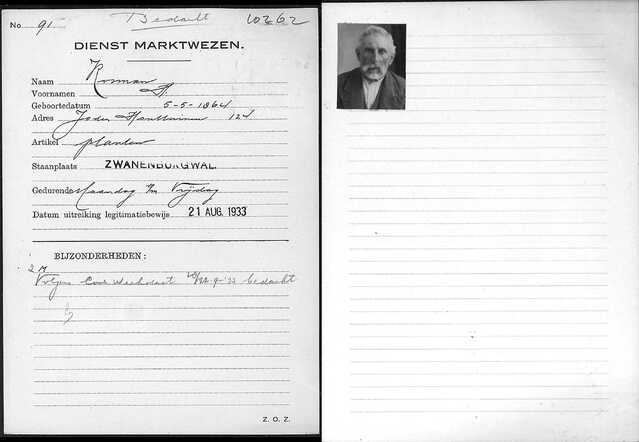 No. 91. Bedankt 10262
DIENST MARKTWEZEN.
Naam
Voornamen
Geboortedatum 5-5-1864
Adres Joden 124
Artikel planten
Staanplaats ZWANENBURGWAL.
Gedurende Maandag t/m Vrijdag
Datum uitreiking legitimatiebewijs 21 AUG. 1933
BIJZONDERHEDEN:
2 M
Volgens 9-'33 bedankt
Z. O. Z.